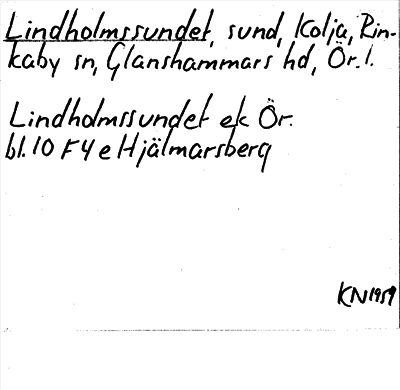 Lindholmssundet, sund, Kolja, Rin-
kaby sn, Glanshammars hd, Ör. l.
Lindholmssundet ek Ör.
bl. 10 F 4 e Hjälmarsberg
KN 1959